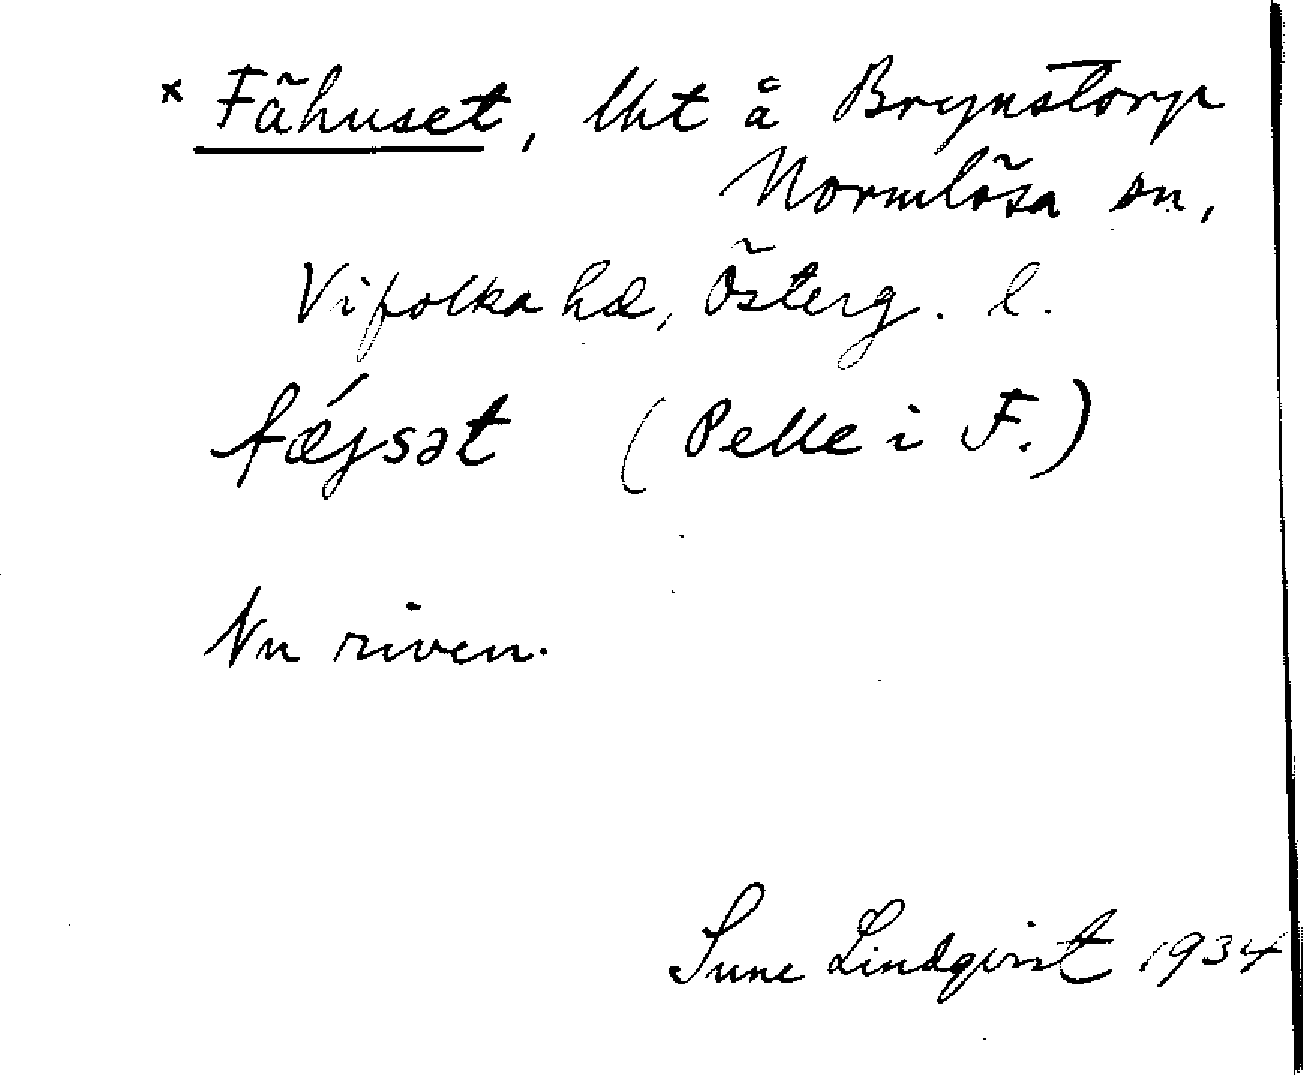 x Fähuset, lht å Brynstorp
Normlösa sn,
Vifolka hd, Österg. l.
fǽjsət (Pelle i F.)
Nu riven.
Sune Lindqvist 1934